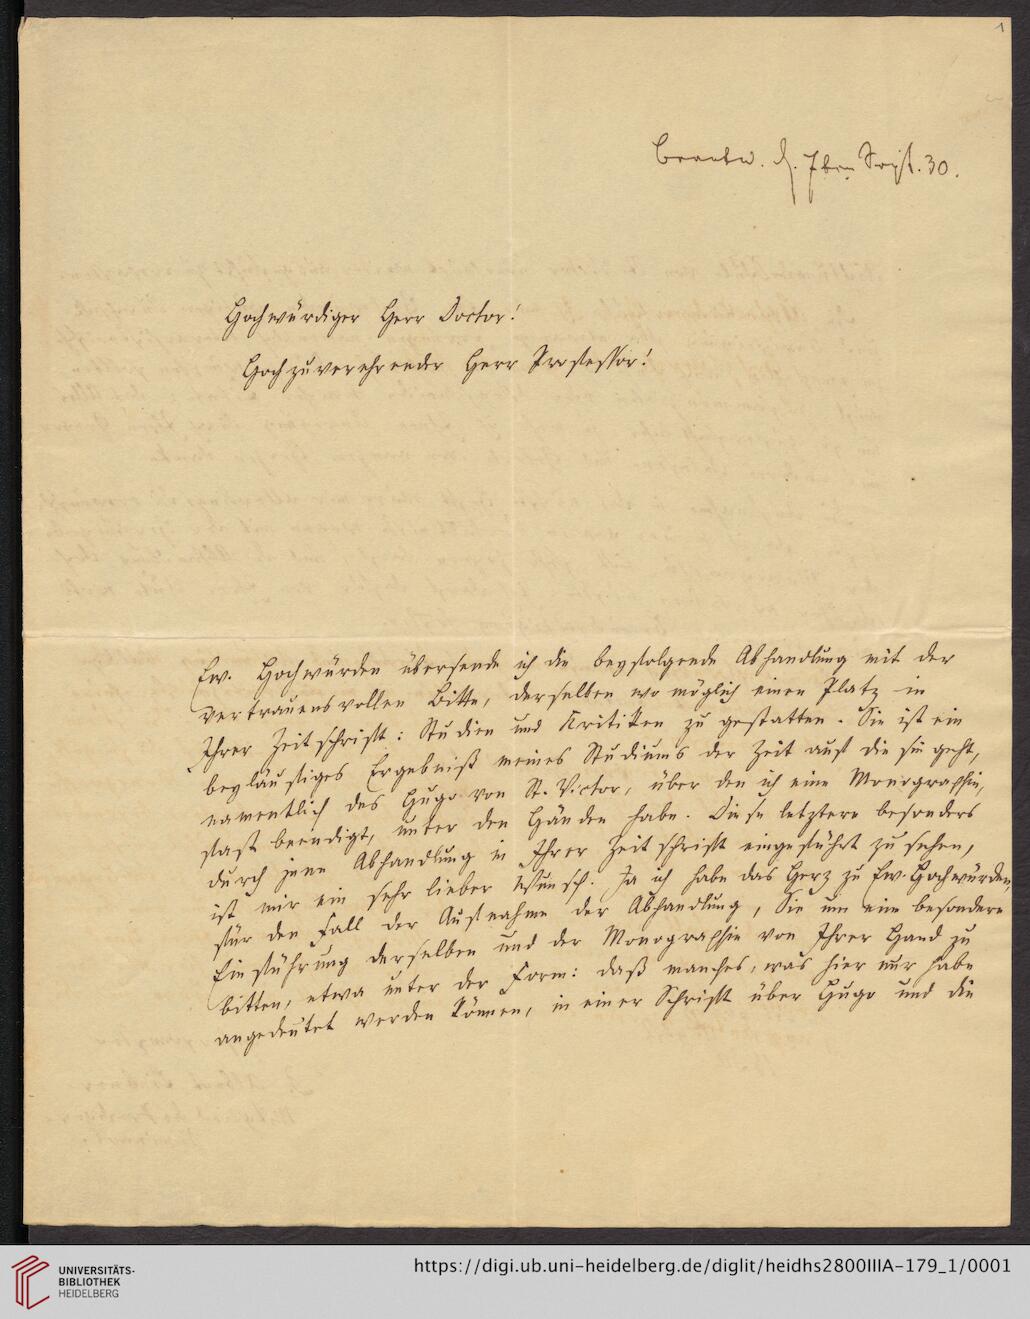 1
d. 7ten Sept. 30.
Hochwürdiger Herr Doctor!
Hochzuverehrender Herr Professor!
Ew. Hochwürden übersende ich die beyfolgende Abhandlung mit der
vertrauensvollen Bitte, derselben wo möglich einen Platz in
Ihrer Zeitschrift: Studien und Kritiken zu gestatten. Sie ist ein
beyläufiges Ergebniß meines Studiums der Zeit auf die sie geht,
namentlich des Hugo von St. Victor, über den ich eine Monographie,
fast beendigt, unter den Händen habe. Diese letztere besonders
durch jene Abhandlung in Ihrer Zeitschrift eingeführt zu sehen,
ist mir ein sehr lieber Wunsch. Ja ich habe das Herz zu Ew. Hochwürden,
für den Fall der Aufnahme der Abhandlung, Sie um eine besondere
Einführung derselben und der Monographie von Ihrer Hand zu
bitten, etwa unter der Form: daß manches, was hier nur habe
angedeutet werden können, in einer Schrift über Hugo und die
UNIVERSITÄTS-
BIBLIOTHEK
HEIDELBERG
https://digi.ub.uni-heidelberg.de/diglit/heidhs2800IIIA-179_1/0001